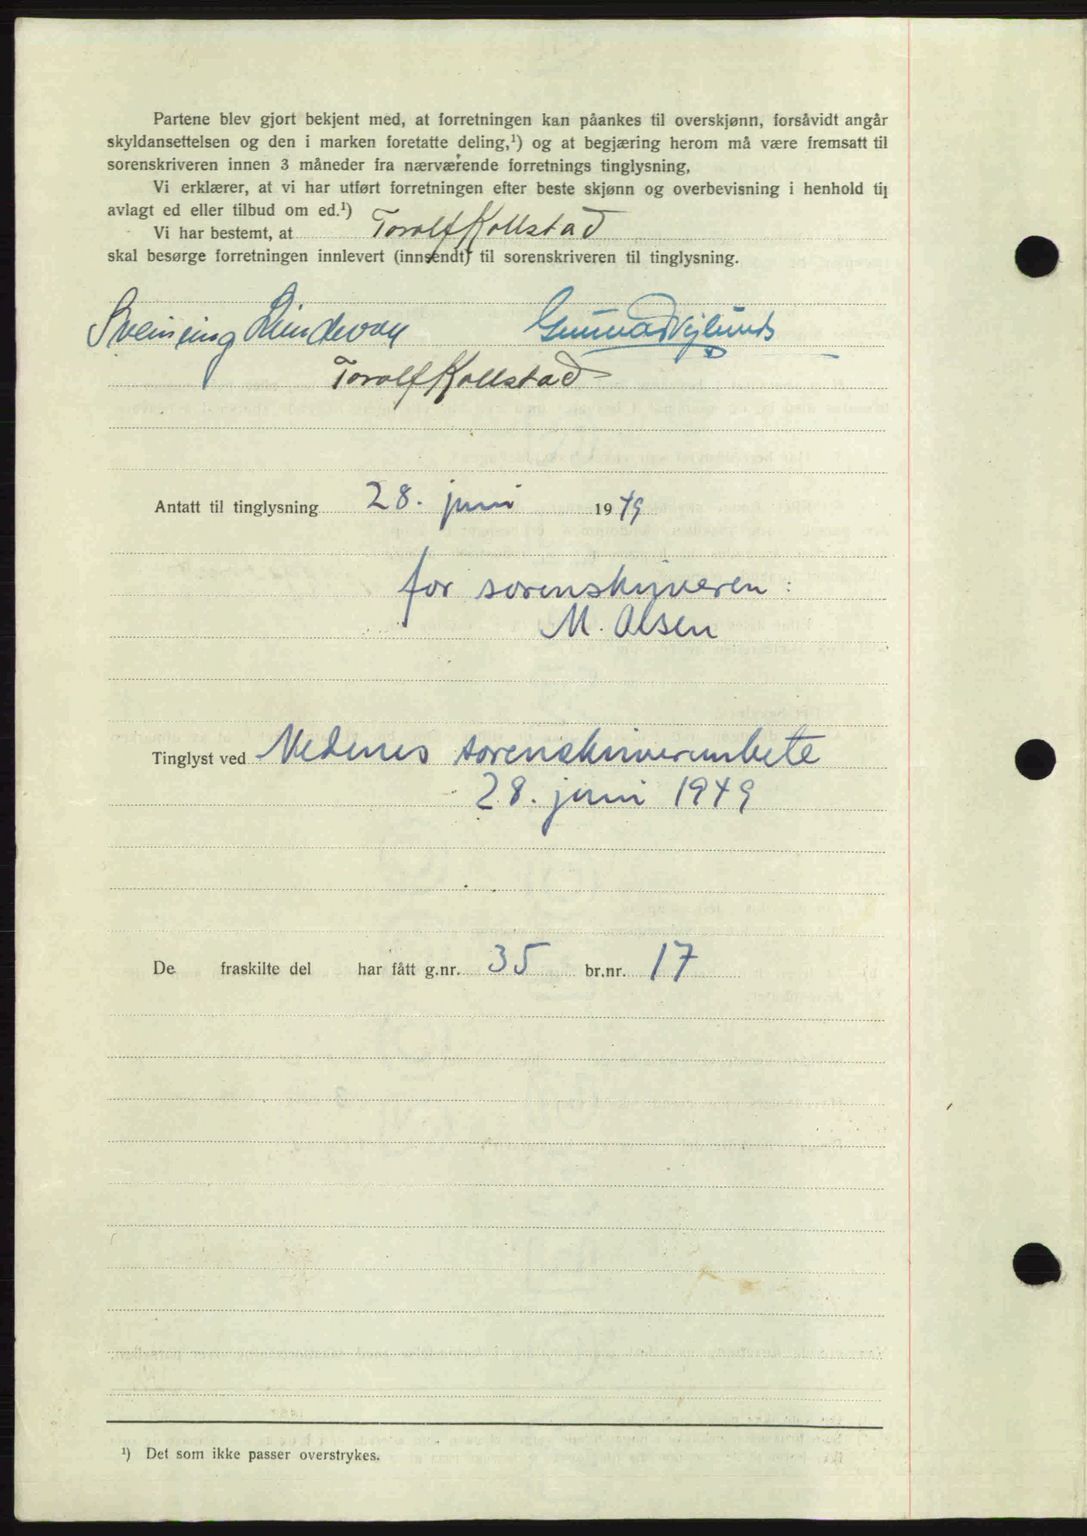 Partene blev gjort bekjent med, at forretningen kan påankes til overskjønn, forsåvidt angår
skyldansettelsen og den i marken foretatte deling,¹) og at begjæring herom må være fremsatt til
sorenskriveren innen 3 måneder fra nærværende forretnings tinglysning,
Vi erklærer, at vi har utført forretningen efter beste skjønn og overbevisning i henhold til
avlagt ed eller tilbud om ed.¹)
Vi har bestemt, at Torolf Kollstad
skal besørge forretningen innlevert (innsendt) til sorenskriveren til tinglysning.
Gunnar
Torolf Kollstad
Antatt til tinglysning 28. juni 1949
for sorenskriveren:
M. Olsen
Tinglyst ved Nedenes sorenskriverembete
28. juni 1949
De fraskilte del har fått g.nr. 35 br.nr. 17
¹) Det som ikke passer overstrykes.